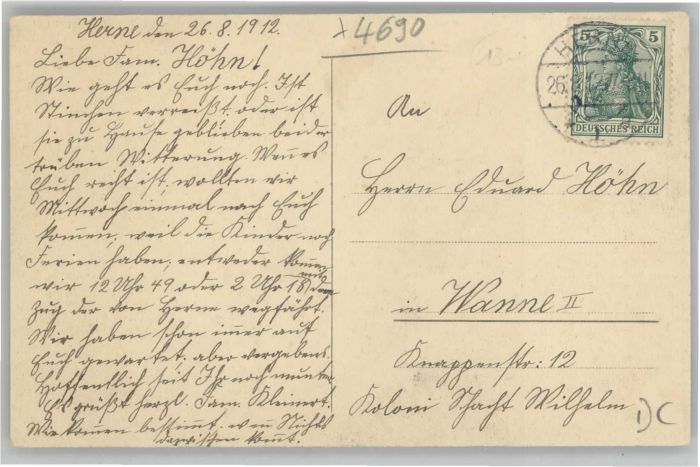 Herne den 26.8.1912.
Liebe Fam. Höhn!
Wie geht es Euch noch. Ist
Stinchen verreißt oder ist
sie zu Hause geblieben bei der
trüben Witterung. Wen̄ es
Euch recht ist, wollten wir
Mittwoch einmal nach Euch
kom̄en, weil die Kinder noch
Ferien haben, entweder kom̄en
wir 12 Uhr 49 oder 2 Uhr 18 mit dem
Zug der von Herne wegfährt.
Wir haben schon immer auf
Euch gewartet, aber vergebens.
Hoffentlich seit Ihr noch munter.
Es grüßt herzl. Fam. Kleinert.
Wir kom̄en bestim̄t, wen̄ Nichts
dazwischen kom̄t.
4690
5 5
DEUTSCHES REICH
26
An
Herrn Eduard Höhn
in Wanne II
Knappenstr: 12
Koloni Schacht Wilhelm